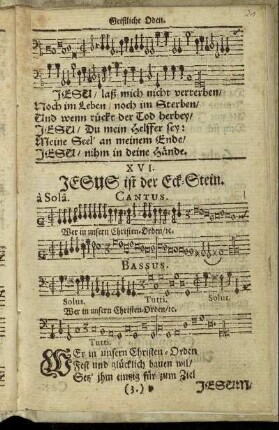 Geistliche Oden.
JESU/ laß mich nicht verterben/
Noch im Leben/ noch im Sterben/
Und wenn rückt der Tod herbey/
JESU/ Du mein Helffer sey:
Meine Seel' an meinem Ende/
JESU/ nihm in deine Hände.
XVI.
JESUS ist der Eck-Stein.
à Solâ. CANTUS.
Wer in unsern Christen-Orden/ec.
BASSUS.
Solus. Tutti. Solus.
Wer in unsern Christen-Orden/ec.
Tutti.
WEr in unsern Christen-Orden
Fest und glücklich bauen wil/
Setz' ihm einzig für zum Ziel
(3.) JESUM/